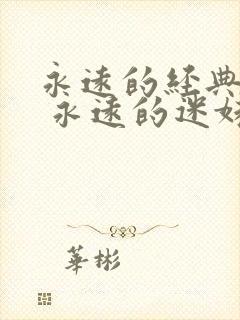 永遠的經典
永遠的迷
華彬